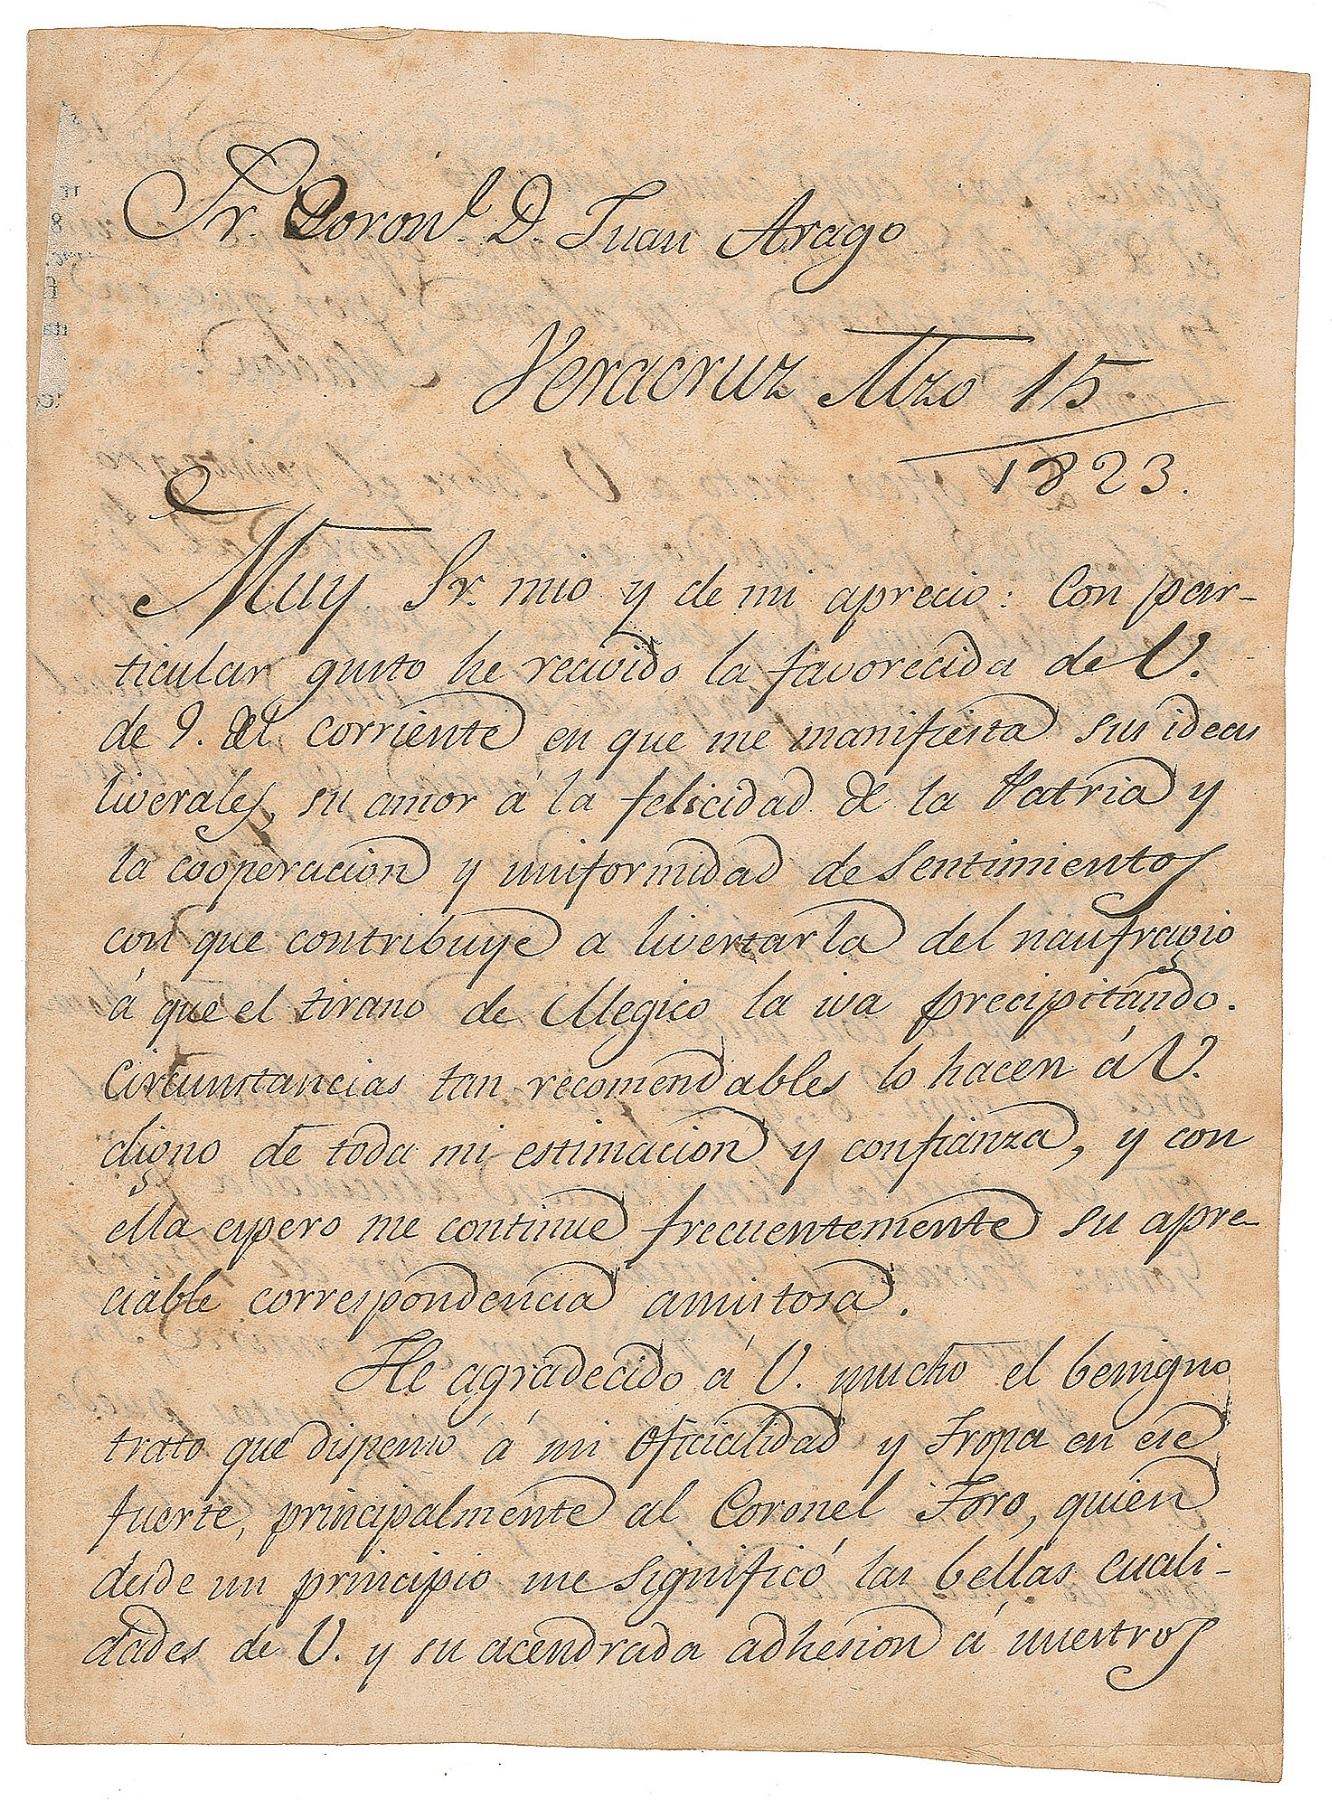 Sr. Coron.l D Juan Arago
Veracruz Mzo 15
1823.
Muy Sr. mio y de mi aprecio: Con par-
ticular gusto he recivido la favorecida de V.
de 9. del corriente en que me manifiesta sus ideas
liverales, su amor á la felicidad de la Patria y
la cooperacion y uniformidad de sentimientos
con que contribuye a livertarla del naufragio
á que el tirano de Megico la iva precipitando.
Circunstancias tan recomendables lo hacen á V.
digno de toda mi estimacion y confianza, y con
élla espero me continue frecuentemente su apre-
ciable correspondencia amistosa.
He agradecido á V. mucho el benigno
trato que dispensó á mi Oficialidad y Tropa en ese
fuerte, principalmente al Coronel Toro, quien
desde un principio me significó las bellas cuali-
dades de V. y su acendrada adhesion á nuestros